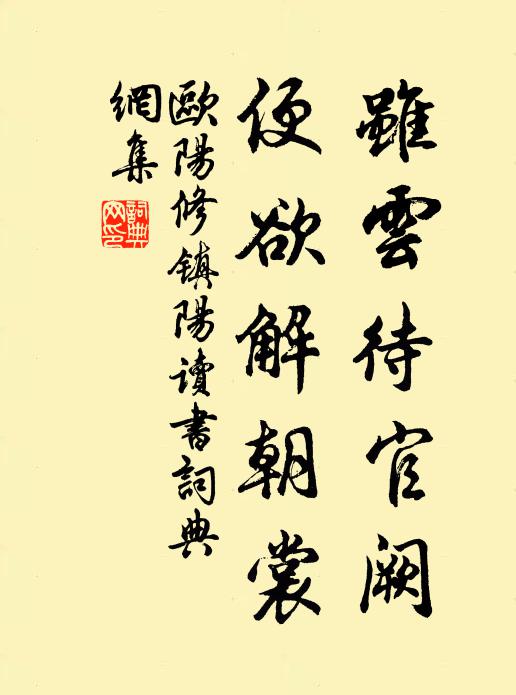 雖雲待官阙
便欲解朝裳
歐陽修鎮陽讀書詞典
網集
詞典網印